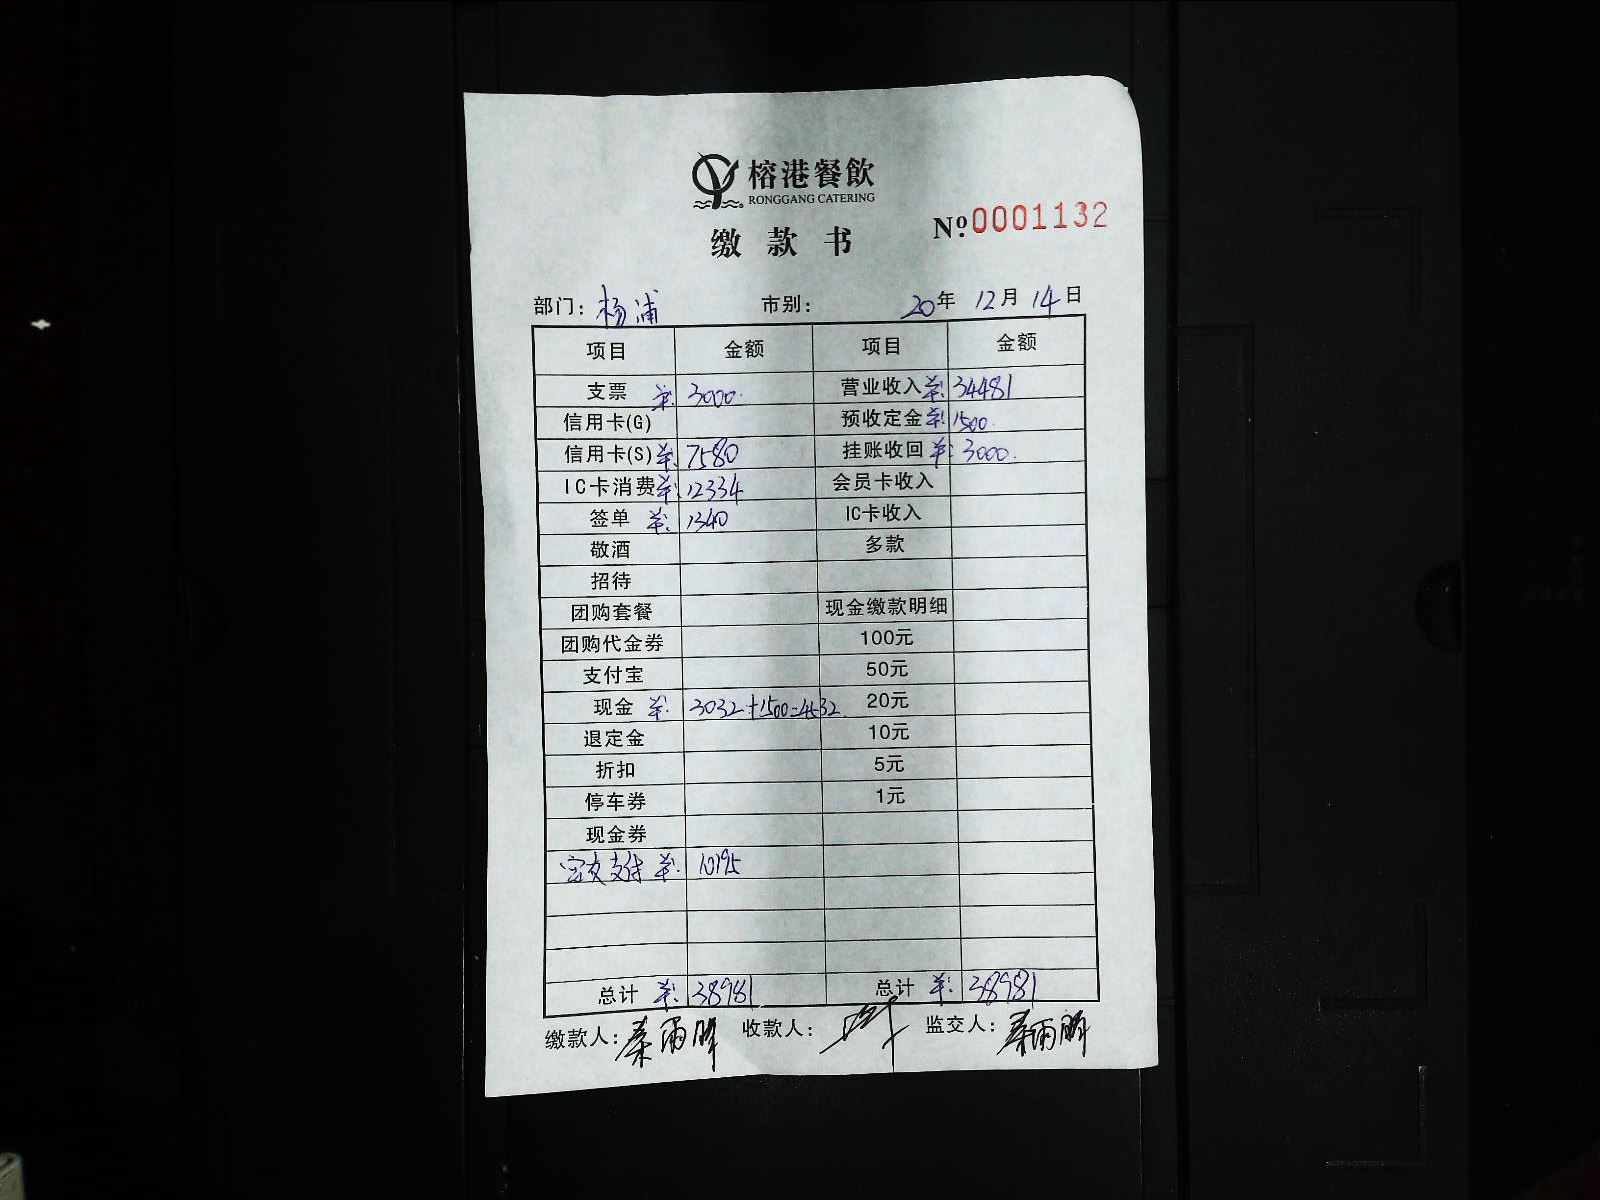 榕港餐飲
RONGGANG CATERING
缴款书
No.0001132
部门：杨浦 市别： 20年 12月 14日
项目 金额 项目 金额
支票 羊: 3000. 营业收入 羊: 34481
信用卡(G) 预收定金 羊: 1500.
信用卡(S) 羊: 7580 挂账收回 羊: 3000.
IC卡消费 羊: 12334 会员卡收入
签单 羊: 1340 IC卡收入
敬酒 多款
招待
团购套餐 现金缴款明细
团购代金券 100元
支付宝 50元
现金 羊: 3032+1500=4532. 20元
退定金 10元
折扣 5元
停车券 1元
现金券
支付 羊: 10195
总计 羊: 38981 总计 羊: 38981
缴款人：秦雨鹏 收款人： 监交人：秦雨鹏